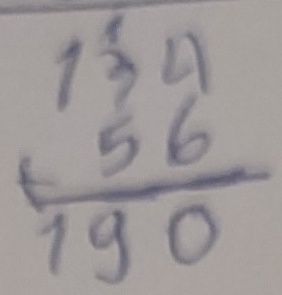 1
134
+ 56
190